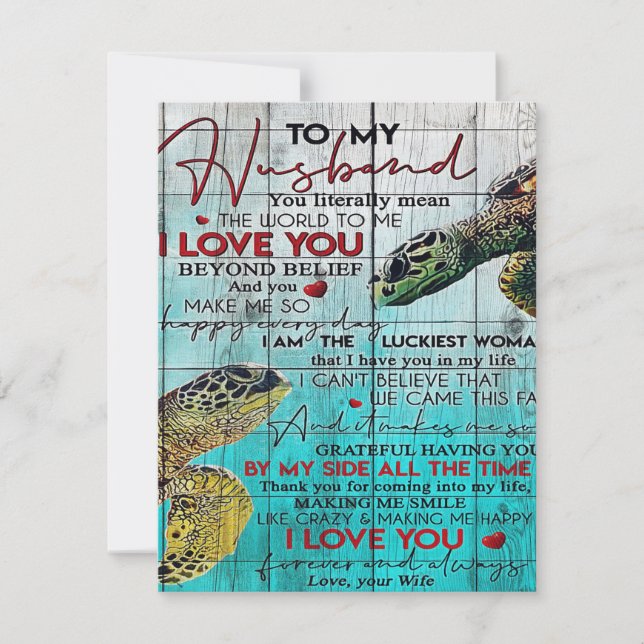 TO MY
Husband
You literally mean
THE WORLD TO ME
I LOVE YOU
BEYOND BELIEF
And you
MAKE ME SO
happy every day
I AM THE LUCKIEST WOMA
that I have you in my life
I CAN'T BELIEVE THAT
WE CAME THIS FA
And it makes me so
GRATEFUL HAVING YOU
BY MY SIDE ALL THE TIME
Thank you for coming into my life,
MAKING ME SMILE
LIKE CRAZY & MAKING ME HAPPY
I LOVE YOU
forever and always
Love, your Wife